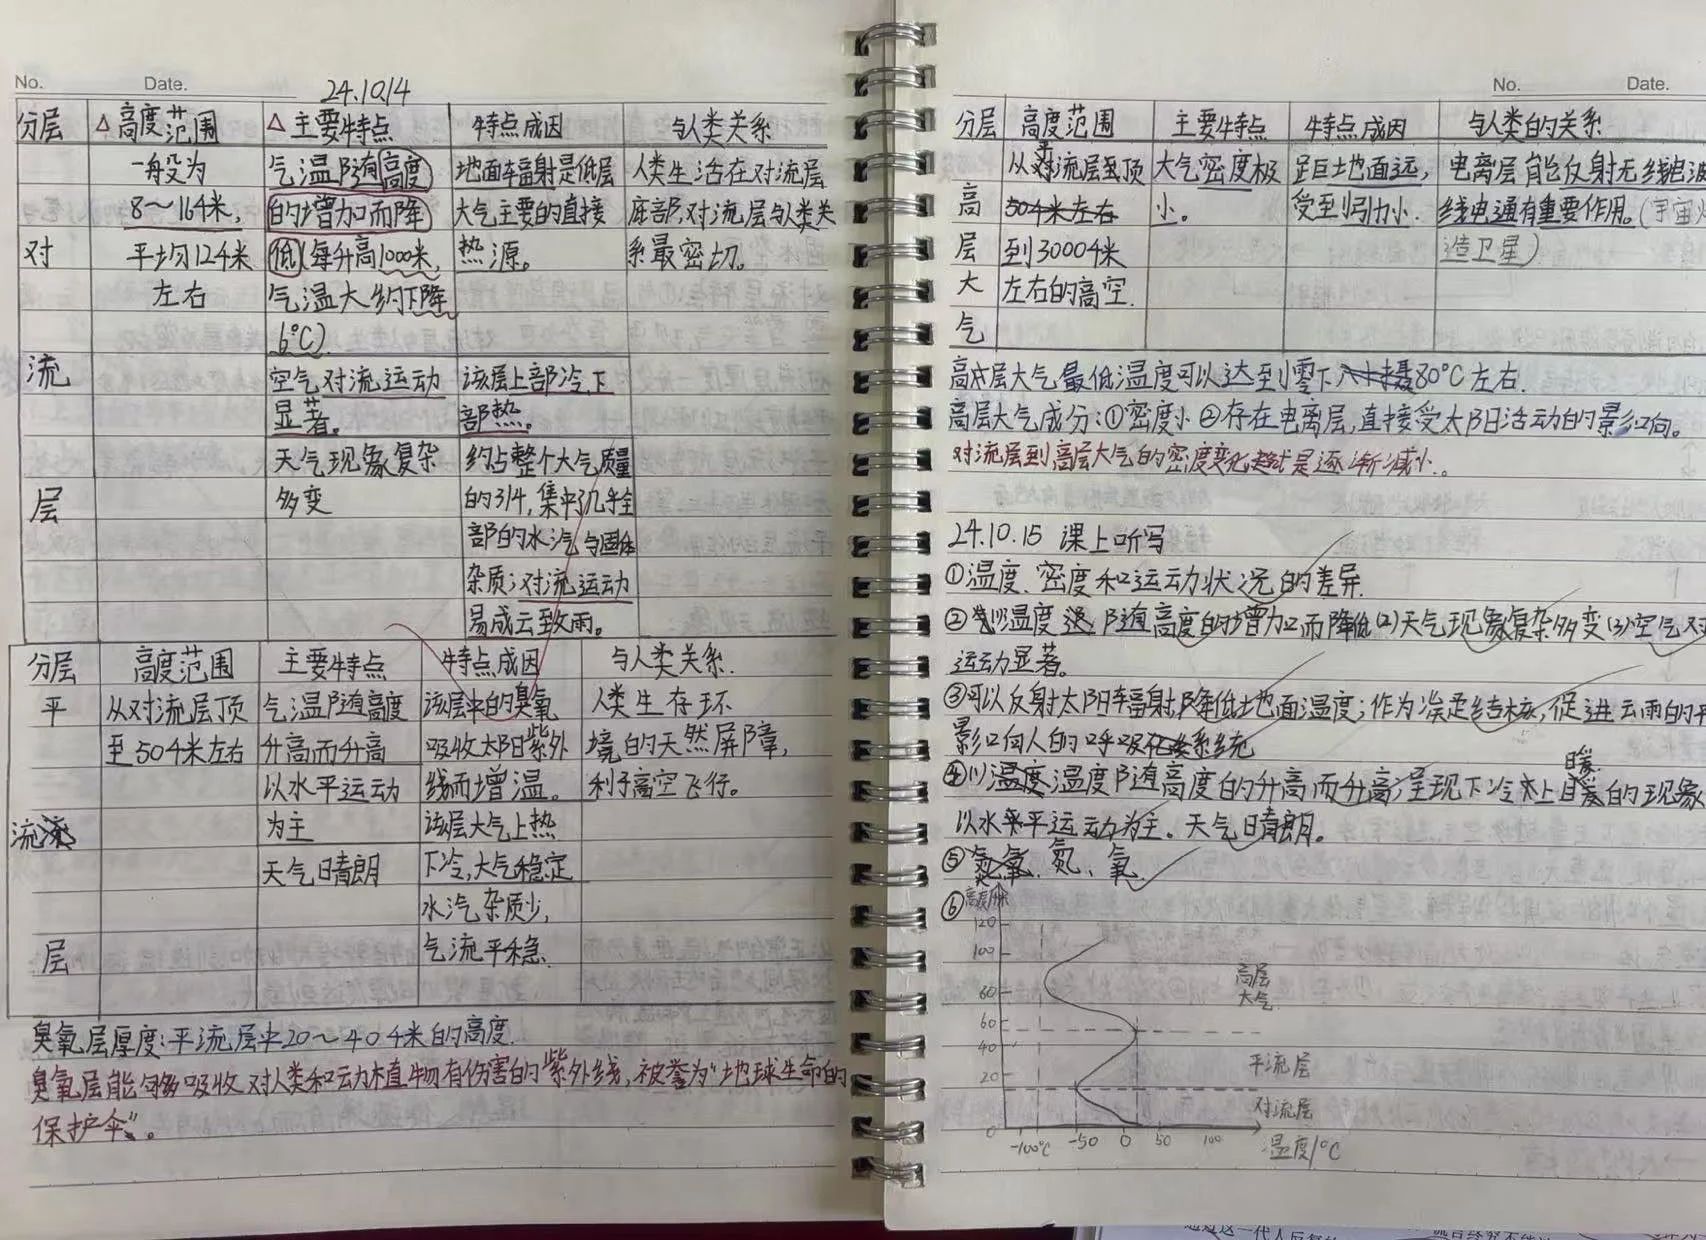 No. Date.
24.10.14
分层 △高度范围 △主要特点 特点成因 与人类关系
一般为 气温随高度 地面辐射是低层 人类生活在对流层
8～16千米, 的增加而降 大气主要的直接 底部,对流层与人类关
对 平均12千米 低(每升高1000米, 热源。 系最密切。
左右 气温大约下降
6℃)
流 空气对流运动 该层上部冷下
显著。 部热。
天气现象复杂 约占整个大气质量
层 多变 的3/4,集中了几乎全
部的水汽与固体
杂质;对流运动
易成云致雨。
分层 高度范围 主要特点 特点成因 与人类关系.
平 从对流层顶 气温随高度 该层中的臭氧 人类生存环
至50千米左右 升高而升高 吸收太阳紫外 境的天然屏障,
以水平运动 线而增温。 利于高空飞行。
流 为主 该层大气上热
天气晴朗 下冷,大气稳定
水汽杂质少,
层 气流平稳.
臭氧层厚度:平流层中20～40千米的高度.
臭氧层能够吸收对人类和动植物有伤害的紫外线,被誉为"地球生命的
保护伞"。
No. Date.
分层 高度范围 主要特点 特点成因 与人类的关系
从平流层顶 大气密度极 距地面远, 电离层能反射无线电波
高 50千米左右 小。 受到引力小. 线电通有重要作用。(宇宙
层 到3000千米 造卫星)
大 左右的高空.
气
高层大气最低温度可以达到零下80℃左右.
高层大气成分:①密度小 ②存在电离层,直接受太阳活动的影响。
对流层到高层大气的密度变化趋势是逐渐减小.。
24.10.15 课上听写
①温度、密度和运动状况的差异.
②(1)温度随高度的增加而降低(2)天气现象复杂多变(3)空气对
运动显著。
③可以反射太阳辐射,降低地面温度;作为凝结核,促进云雨的
影响人的呼吸系统
④温度随高度的升高而升高,呈现下冷上暖的现象
以水平运动为主。天气晴朗。
⑤氮、氧.
⑥高度/km
120
100
高层
大气
60
60
40
平流层
20
对流层
0
-100℃ -50 0 50 100
温度/℃